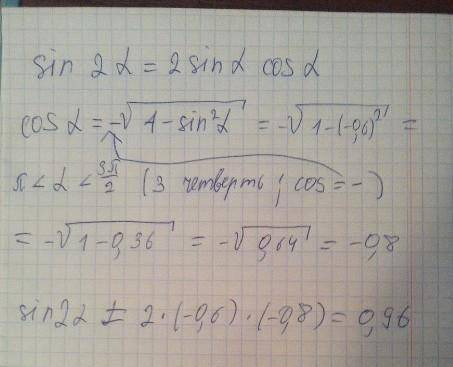 sin 2α = 2 sinα cosα
cosα = -√(1 - sin²α) = -√(1 - (-0,6)²) =
π < α < 3π/2 (3 четверть ; cos = -)
= -√(1 - 0,36) = -√(0,64) = -0,8
sin2α = 2 · (-0,6) · (-0,8) = 0,96